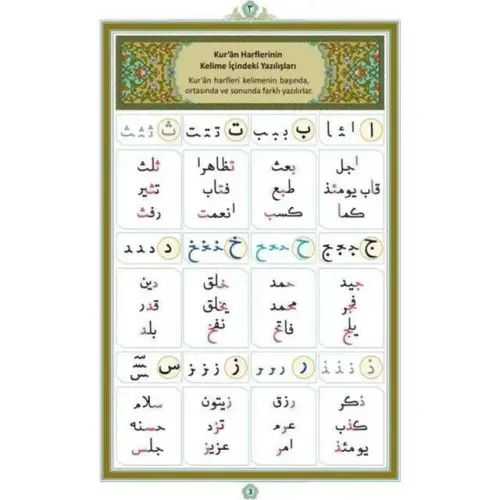 ٣
Kur'ân Harflerinin
Kelime İçindeki Yazılışları
Kur'ân harfleri kelimenin başında,
ortasında ve sonunda farklı yazılırlar.
ا ا ئا ب ببب ت تتت ث ثثث
اجل بعث تظاهرا ثلث
قاب يومئذ طبع فتاب تثير
كما كسب انعمت رفث
ج ججج ح ححح خ خخخ د ددد
جيد حمد خلق دين
فجر محمد يخلق قدر
يلج فاتح نفخ بلد
ذ ذذذ ر ررر ز ززز س سسس
ذكر رزق زيتون سلام
كذب عرم تزد حسنه
يومئذ امر عزيز جلس
3